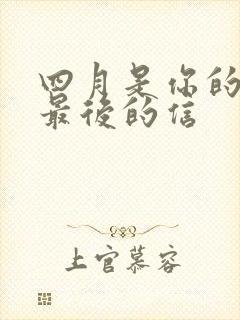 四月是你的
最后的信
上官慕容